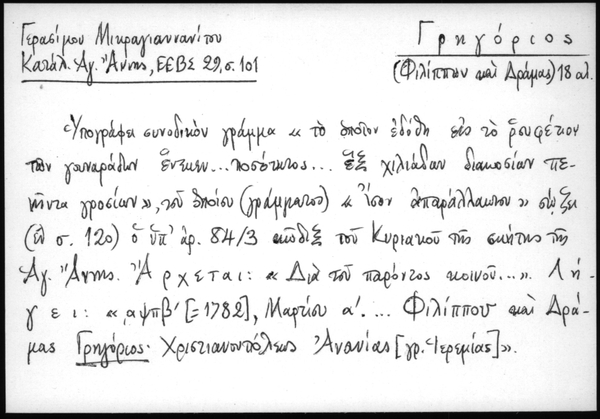 Γερασίμου Μικραγιαννανίτου
Κατάλ. Ἁγ. Ἄννης, ΕΕΒΣ 29, σ. 101
Γρηγόριος
(Φιλίππων καὶ Δράμας) 18 αἰ.
Ὑπογράφει συνοδικὸν γράμμα «τὸ ὁποῖον ἐδόθη εἰς τὸ ῥουφέτιον
τῶν γουναράδων ἕνεκεν... ποσότητος... ἓξ χιλιάδων διακοσίων πε-
νῆντα γροσίων», τοῦ ὁποίου (γράμματος) «Ἴσον ἀπαράλλακτον» σῴζει
(ἐν σ. 120) ὁ ὑπ' ἀρ. 84/3 κῶδιξ τοῦ Κυριακοῦ τῆς σκήτης τῆς
Ἁγ. Ἄννης. Ἄρχεται: «Διὰ τοῦ παρόντος κοινοῦ...». Λή-
γει: «͵αψπβ' [= 1782], Μαρτίου α'. ... Φιλίππου καὶ Δρά-
μας Γρηγόριος· Χριστιανουπόλεως Ἀνανίας [γρ. Ἱερεμίας]».